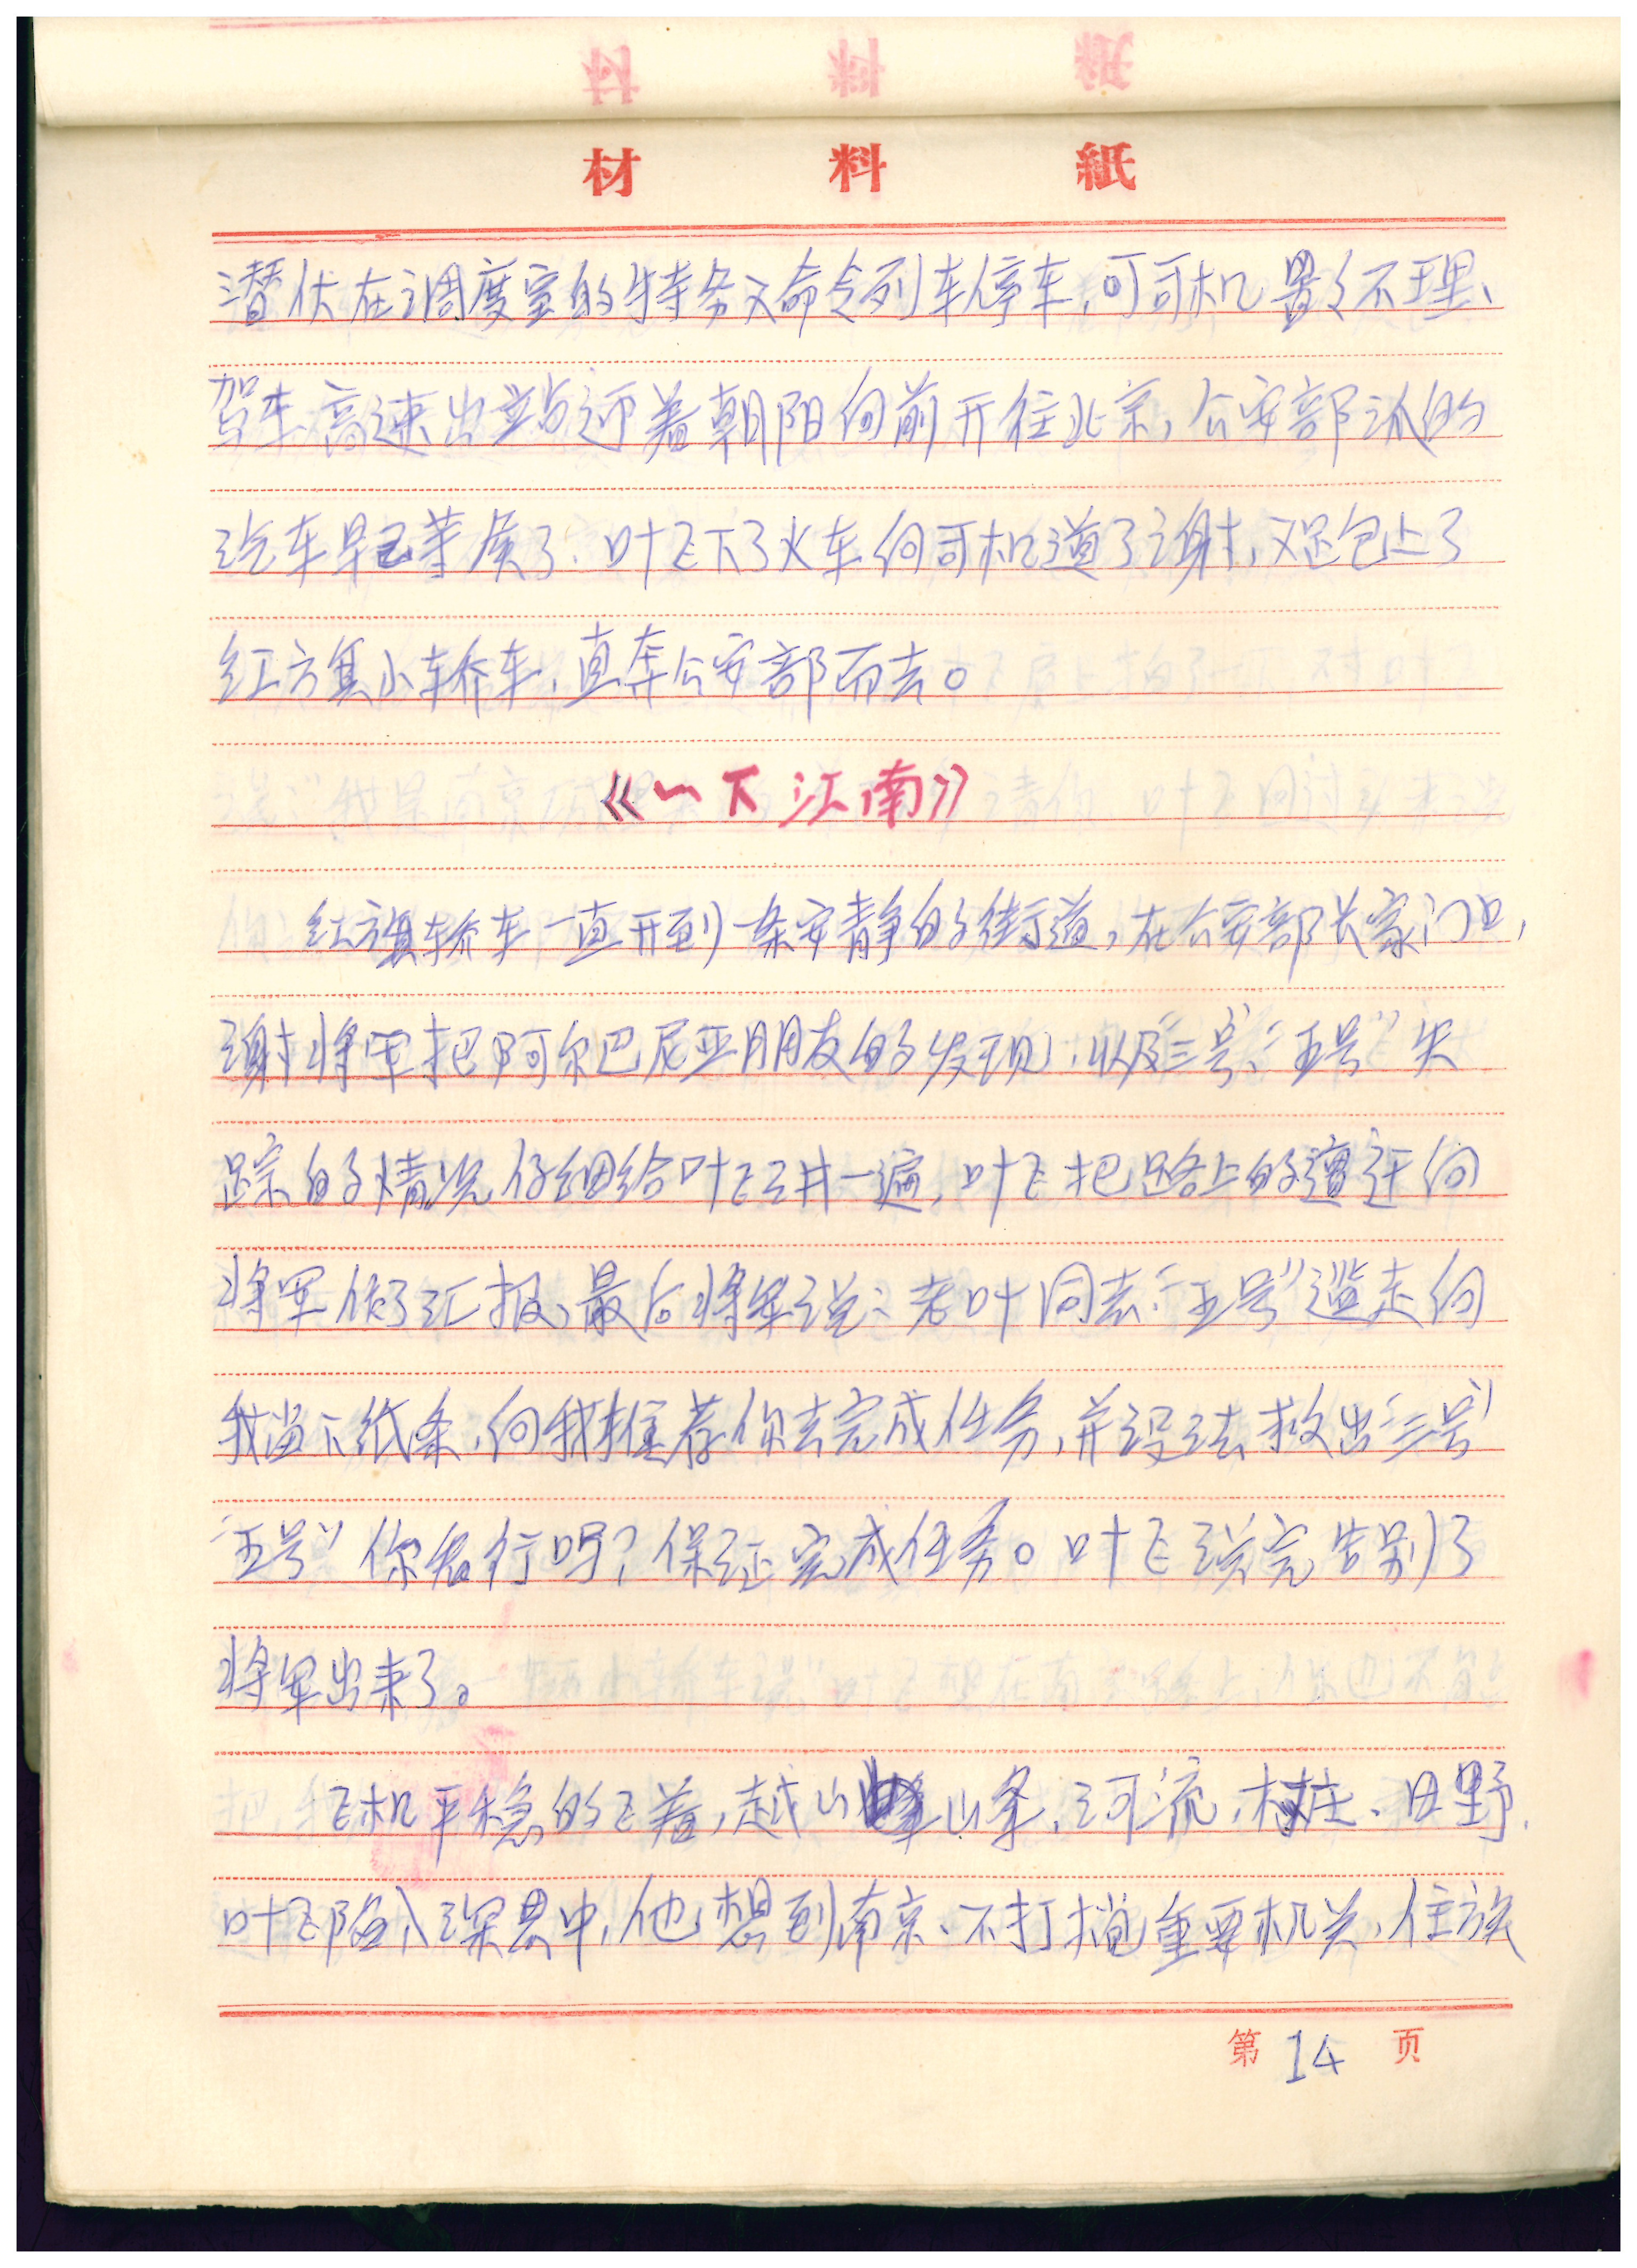 材料紙
潜伏在调度室的特务又命令列车停车,可司机置之不理、
驾车高速出站迎着朝阳向前开往北京,公安部派的
汽车早已等候了.叶飞下了火车向司机道了谢,又跑上了
红旗小轿车,直奔公安部而去。
《一下江南》
红旗轿车一直开到一条安静的街道,在公安部长家门口,
谢将军把阿尔巴尼亚朋友的发现,以及“三号”、“五号”失
踪的情况仔细给叶飞讲一遍,叶飞把路上的遭迂向
将军做了汇报,最后将军说:老叶同志“五号”临走向
我留下纸条,向我推荐你去完成任务,并设法救出“三号”
“五号”你看行吗?保证完成任务。叶飞说完告别了
将军出来了。
飞机平稳的飞着,越山山峰,河流,村庄、田野,
叶飞陷入深思中,他想到南京、不打搅重要机关,住旅
第14页